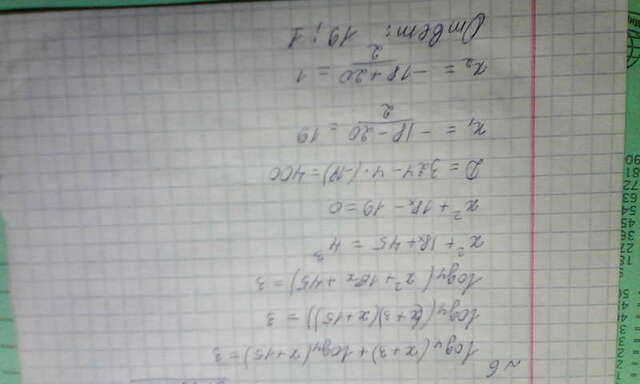 №6
log₄(x+3)+log₄(x+15)=3
log₄((x+3)(x+15))=3
log₄(x²+18x+45)=3
x²+18x+45=4³
x²+18x-19=0
D=324-4·(-19)=400
x₁=(-18-20)/2=19
x₂=(-18+20)/2=1
Ответ: 19; 1